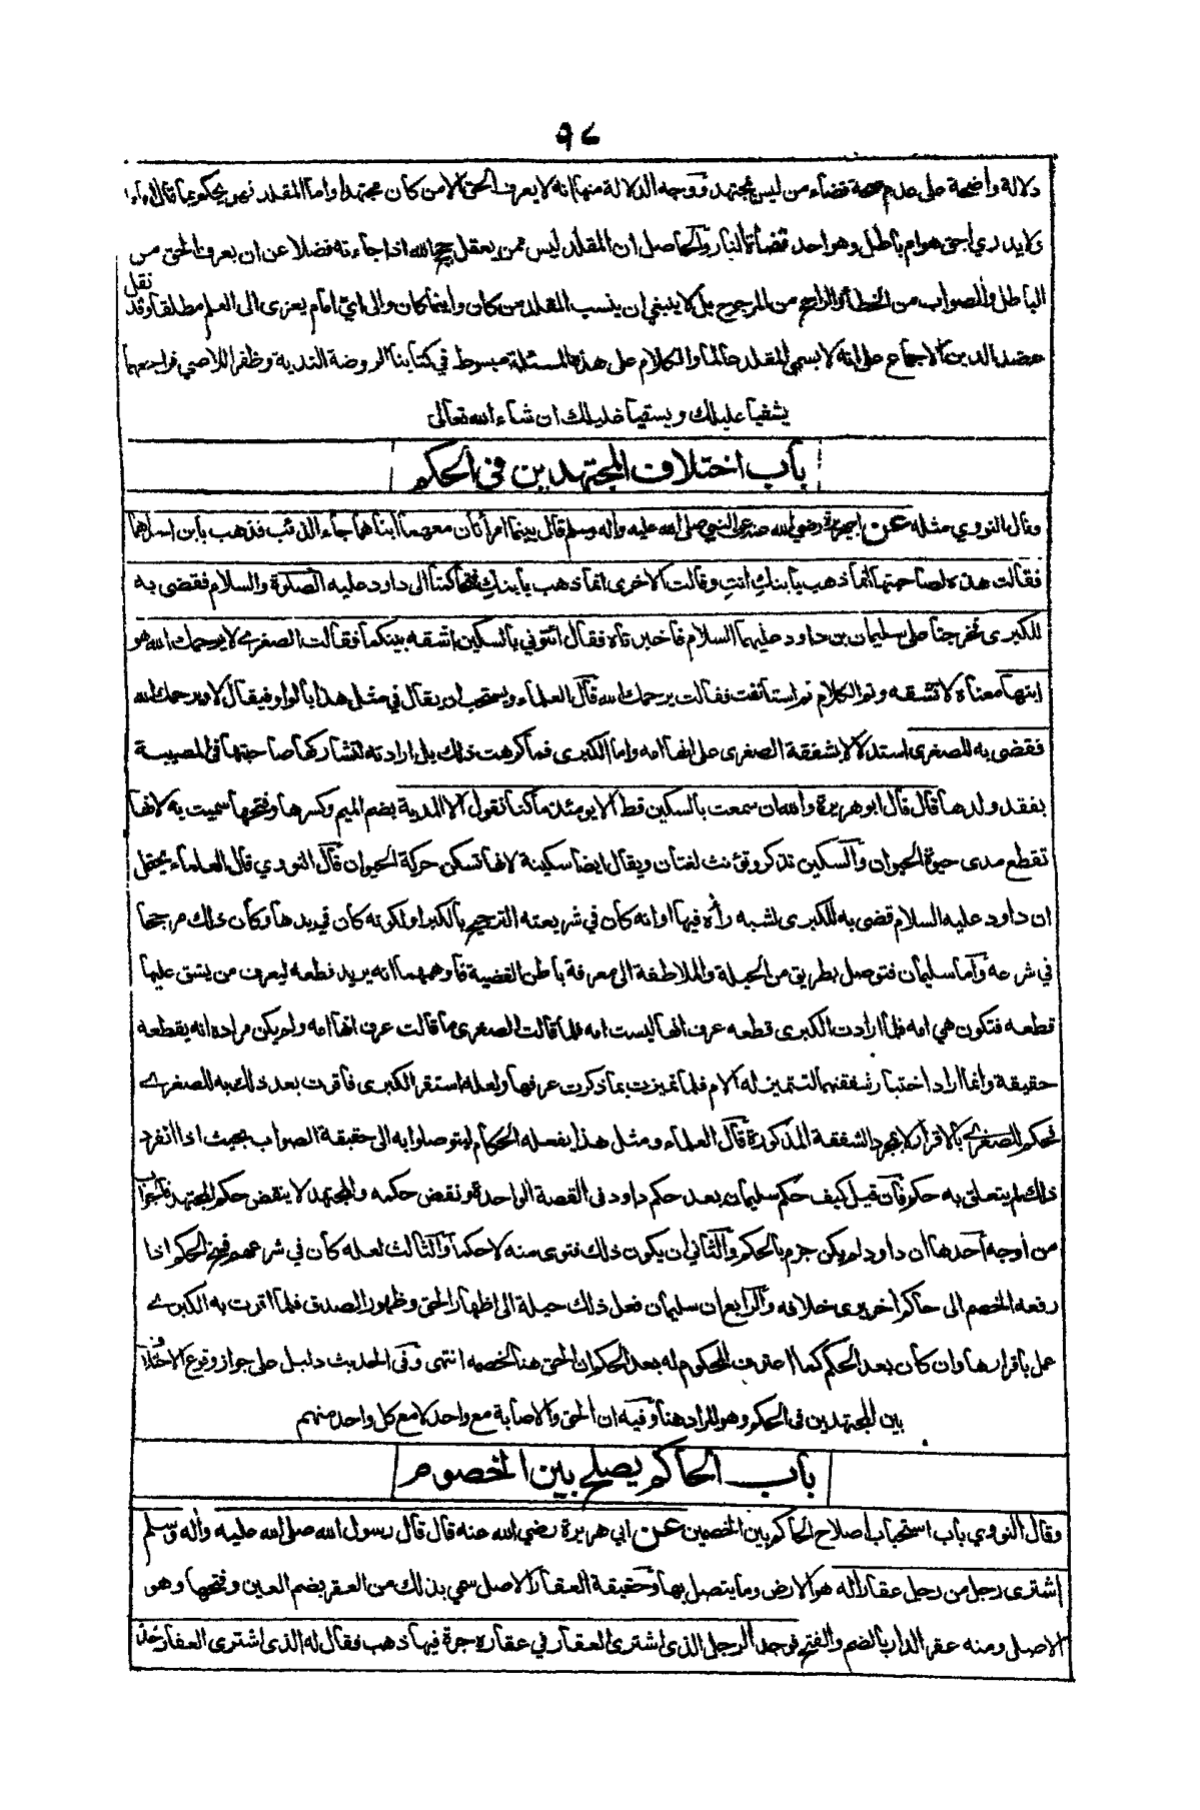 ٩٤
دلالة واضحة على عدم صحة قضاء من ليس بمجتهد ووجه الدلالة منها انه لا يعرف الحق الا من كان مجتهدا واما المقلد فهو يحكم بما قال امامه
لا يدري احق هو ام باطل وهو احد قضاة النار والحاصل ان المقلد ليس ممن يعقل حجج الله اذا جاءته فضلا عن ان يعرف الحق من
الباطل والصواب من الخطأ والراجح من المرجوح بل لا ينبغي ان ينسب المقلد من كان واينما كان والى ايّ امام يعزى الى العلم مطلقا وقد نقل
عضد الدين الاجماع على انه لا يسمى المقلد عالما والكلام على هذه المسئلة مبسوط في كتابنا الروضة الندية وظفر اللاضي فراجعهما
يشفيا عليلك ويسقيا غليلك ان شاء الله تعالى
باب اختلاف المجتهدين في الحكم
وقال النووي مثله عن ابي هريرة رضي الله عنه عن النبي صلى الله عليه وآله وسلم قال بينما امرأتان معهما ابناهما جاء الذئب فذهب بابن احداهما
فقالت هذه لصاحبتها انما ذهب بابنك انت وقالت الاخرى انما ذهب بابنك فتحاكمتا الى داود عليه الصلوة والسلام فقضى به
للكبرى فخرجتا على سليمان بن داود عليهما السلام فاخبرتاه فقال ائتوني بالسكين اشقه بينكما فقالت الصغرى لا يرحمك الله هو
ابنها معناه لا تشقه وتم الكلام ثم استأنفت فقالت يرحمك الله قال العلماء ويستحب ان يقال في مثل هذا بالواو فيقال لا ويرحمك الله
فقضى به للصغرى استدلالا بشفقة الصغرى على انها امه واما الكبرى فما كرهت ذلك بل ارادته لتشاركها صاحبتها في المصيبة
بفقد ولدها قال قال ابو هريرة والله ان سمعت بالسكين قط الا يومئذ ما كنا نقول الا المدية بضم الميم وكسرها وفتحها سميت به لانها
تقطع مدى حيوة الحيوان والسكين تذكر وتؤنث لغتان ويقال ايضا سكينة لانها تسكن حركة الحيوان قال النووي قال العلماء يحتمل
ان داود عليه السلام قضى به للكبرى لشبه رأه فيها او انه كان في شريعته الترجيح بالكبر او لكونه كان في يدها وكان ذلك مرجحا
في شرعه واما سليمان فتوصل بطريق من الحيلة والملاطفة الى معرفة باطن القضية فاوهمهما انه يريد قطعه ليعرف من يشق عليها
قطعه فتكون هي امه فلما ارادت الكبرى قطعه عرف انها ليست امه فلما قالت الصغرى ما قالت عرف انها امه ولم يكن مراده انه يقطعه
حقيقة وانما اراد اختبار شفقتهما لتتميز له الام فلما تميزت بما ذكرت عرفها ولعله استقر الكبرى فاقرت بعد ذلك به للصغرى
فحكم للصغرى بالاقرار لا بمجرد الشفقة المذكورة قال العلماء ومثل هذا يفعله الحكام ليتوصلوا به الى حقيقة الصواب بحيث اذا انفرد
ذلك لم يتعلق به حكم فان قيل كيف حكم سليمان بعد حكم داود في القصة الواحدة ونقض حكمه والمجتهد لا ينقض حكم المجتهد فالجواب
من اوجه احدها ان داود لم يكن جزم بالحكم والثاني ان يكون ذلك فتوى منه لا حكما والثالث لعله كان في شرعهم فسخ الحكم اذا
رفعه الخصم الى حاكم اخر يرى خلافه والرابع ان سليمان فعل ذلك حيلة الى اظهار الحق وظهور الصدق فلما اقرت به الكبرى
عمل باقرارها وان كان بعد الحكم كما اذا اعترف المحكوم له بعد الحكم ان الحق هنا لخصمه انتهى وفي الحديث دليل على جواز وقوع الاختلاف
بين المجتهدين في الحكم وهو المراد هنا وفيه ان الحق والاصابة مع واحد لا مع كل واحد منهم
باب الحاكم يصلح بين الخصوم
وقال النووي باب استحباب اصلاح الحاكم بين الخصمين عن ابي هريرة رضي الله عنه قال قال رسول الله صلى الله عليه وآله وسلم
اشترى رجل من رجل عقارا له هو الارض وما يتصل بها وحقيقة العقار الاصل سمي بذلك من العقر بضم العين وفتحها وهو
الاصل ومنه عقر الدار بالضم والفتح فوجد الرجل الذي اشترى العقار في عقاره جرة فيها ذهب فقال له الذي اشترى العقار خذ